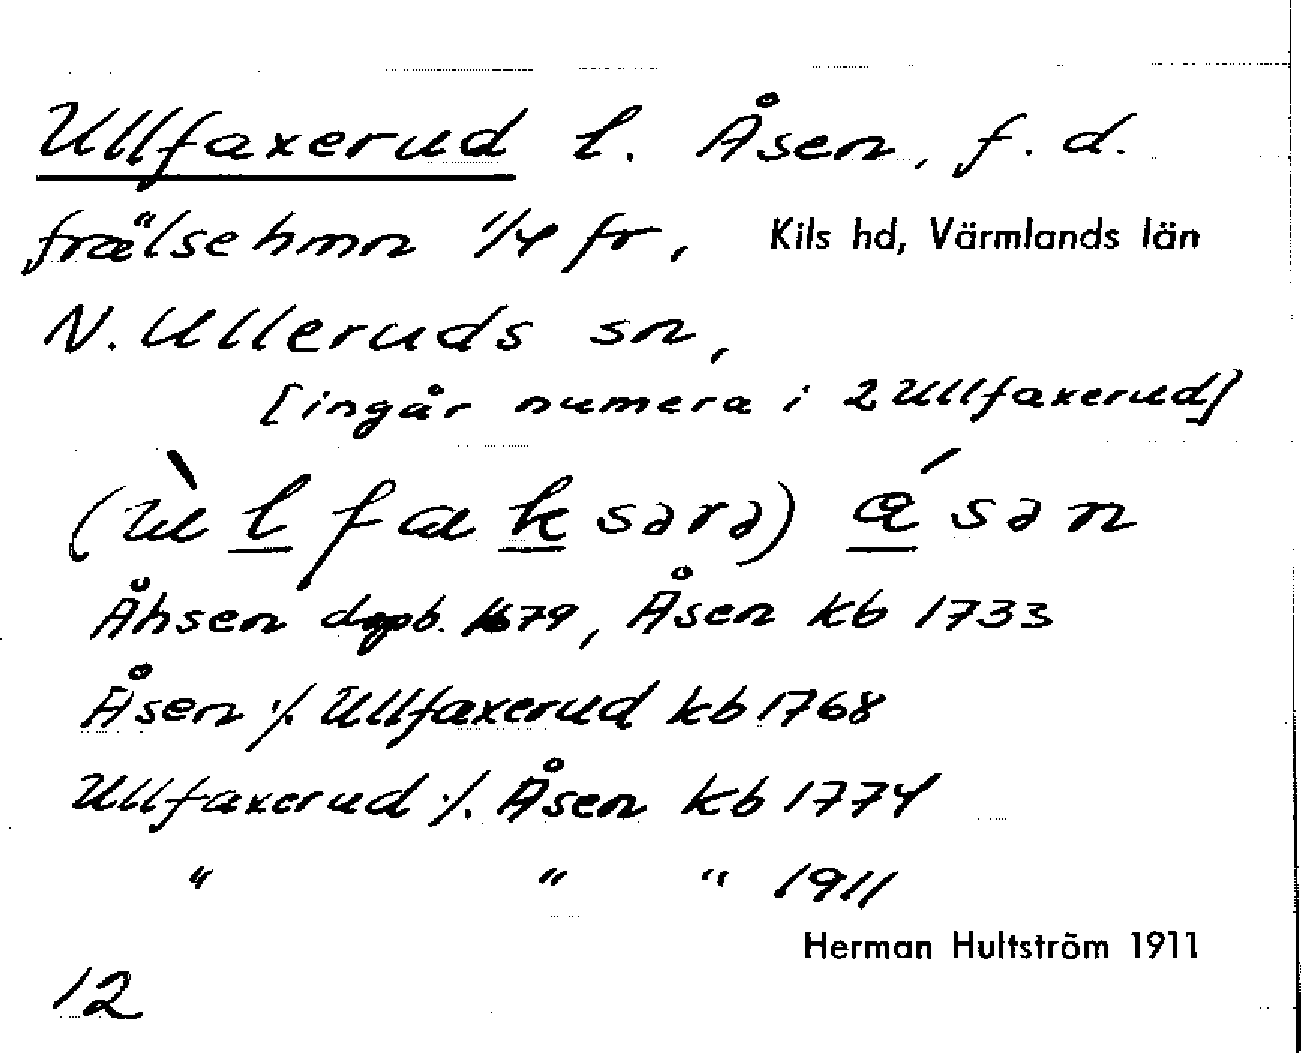 Ullfaxerud l. Åsen, f. d.
frälsehmn 1/4 fr, Kils hd, Värmlands län
N. Ulleruds sn,
[ingår numera i 2 Ullfaxerud]
(ùlfaksərə) ásən
Åhsen dopb. 1679, Åsen kb 1733
Åsen ·/. Ullfaxerud kb 1768
Ullfaxerud ·/. Åsen kb 1774
" " " 1911
Herman Hultström 1911
12